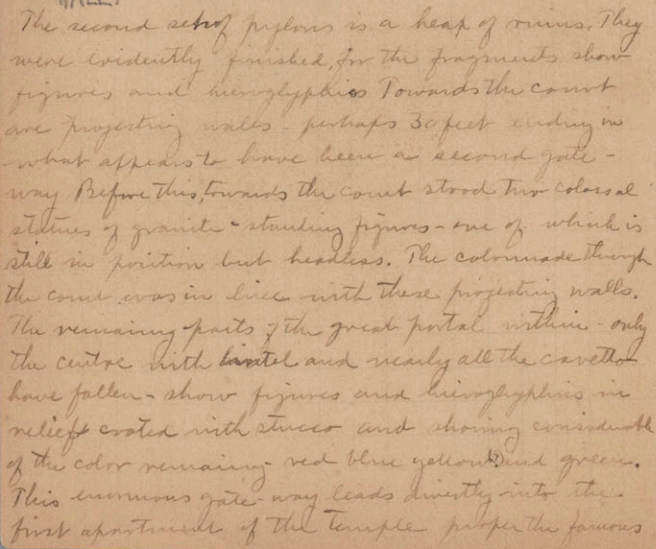 The second set of pylons is a heap of ruins. They
were evidently finished, for the fragments show
figures and hieroglyphics Towards the court
are projecting walls - perhaps 30 feet ending in
what appears to have been a second gate-
way Before this, towards the court stood two colossal
statues of granite - standing figures - one of which is
still in position but headless. The colonnade through
the court was in line with these projecting walls.
The remaining parts of the great portal within - only
the centre with lintel and nearly all the cavetto
have fallen - show figures and hieroglyphics in
relief coated with stucco and showing considerable
of the color remaining - red blue yellow and green.
This enormous gate-way leads directly into the
first apartment of the temple proper the famous